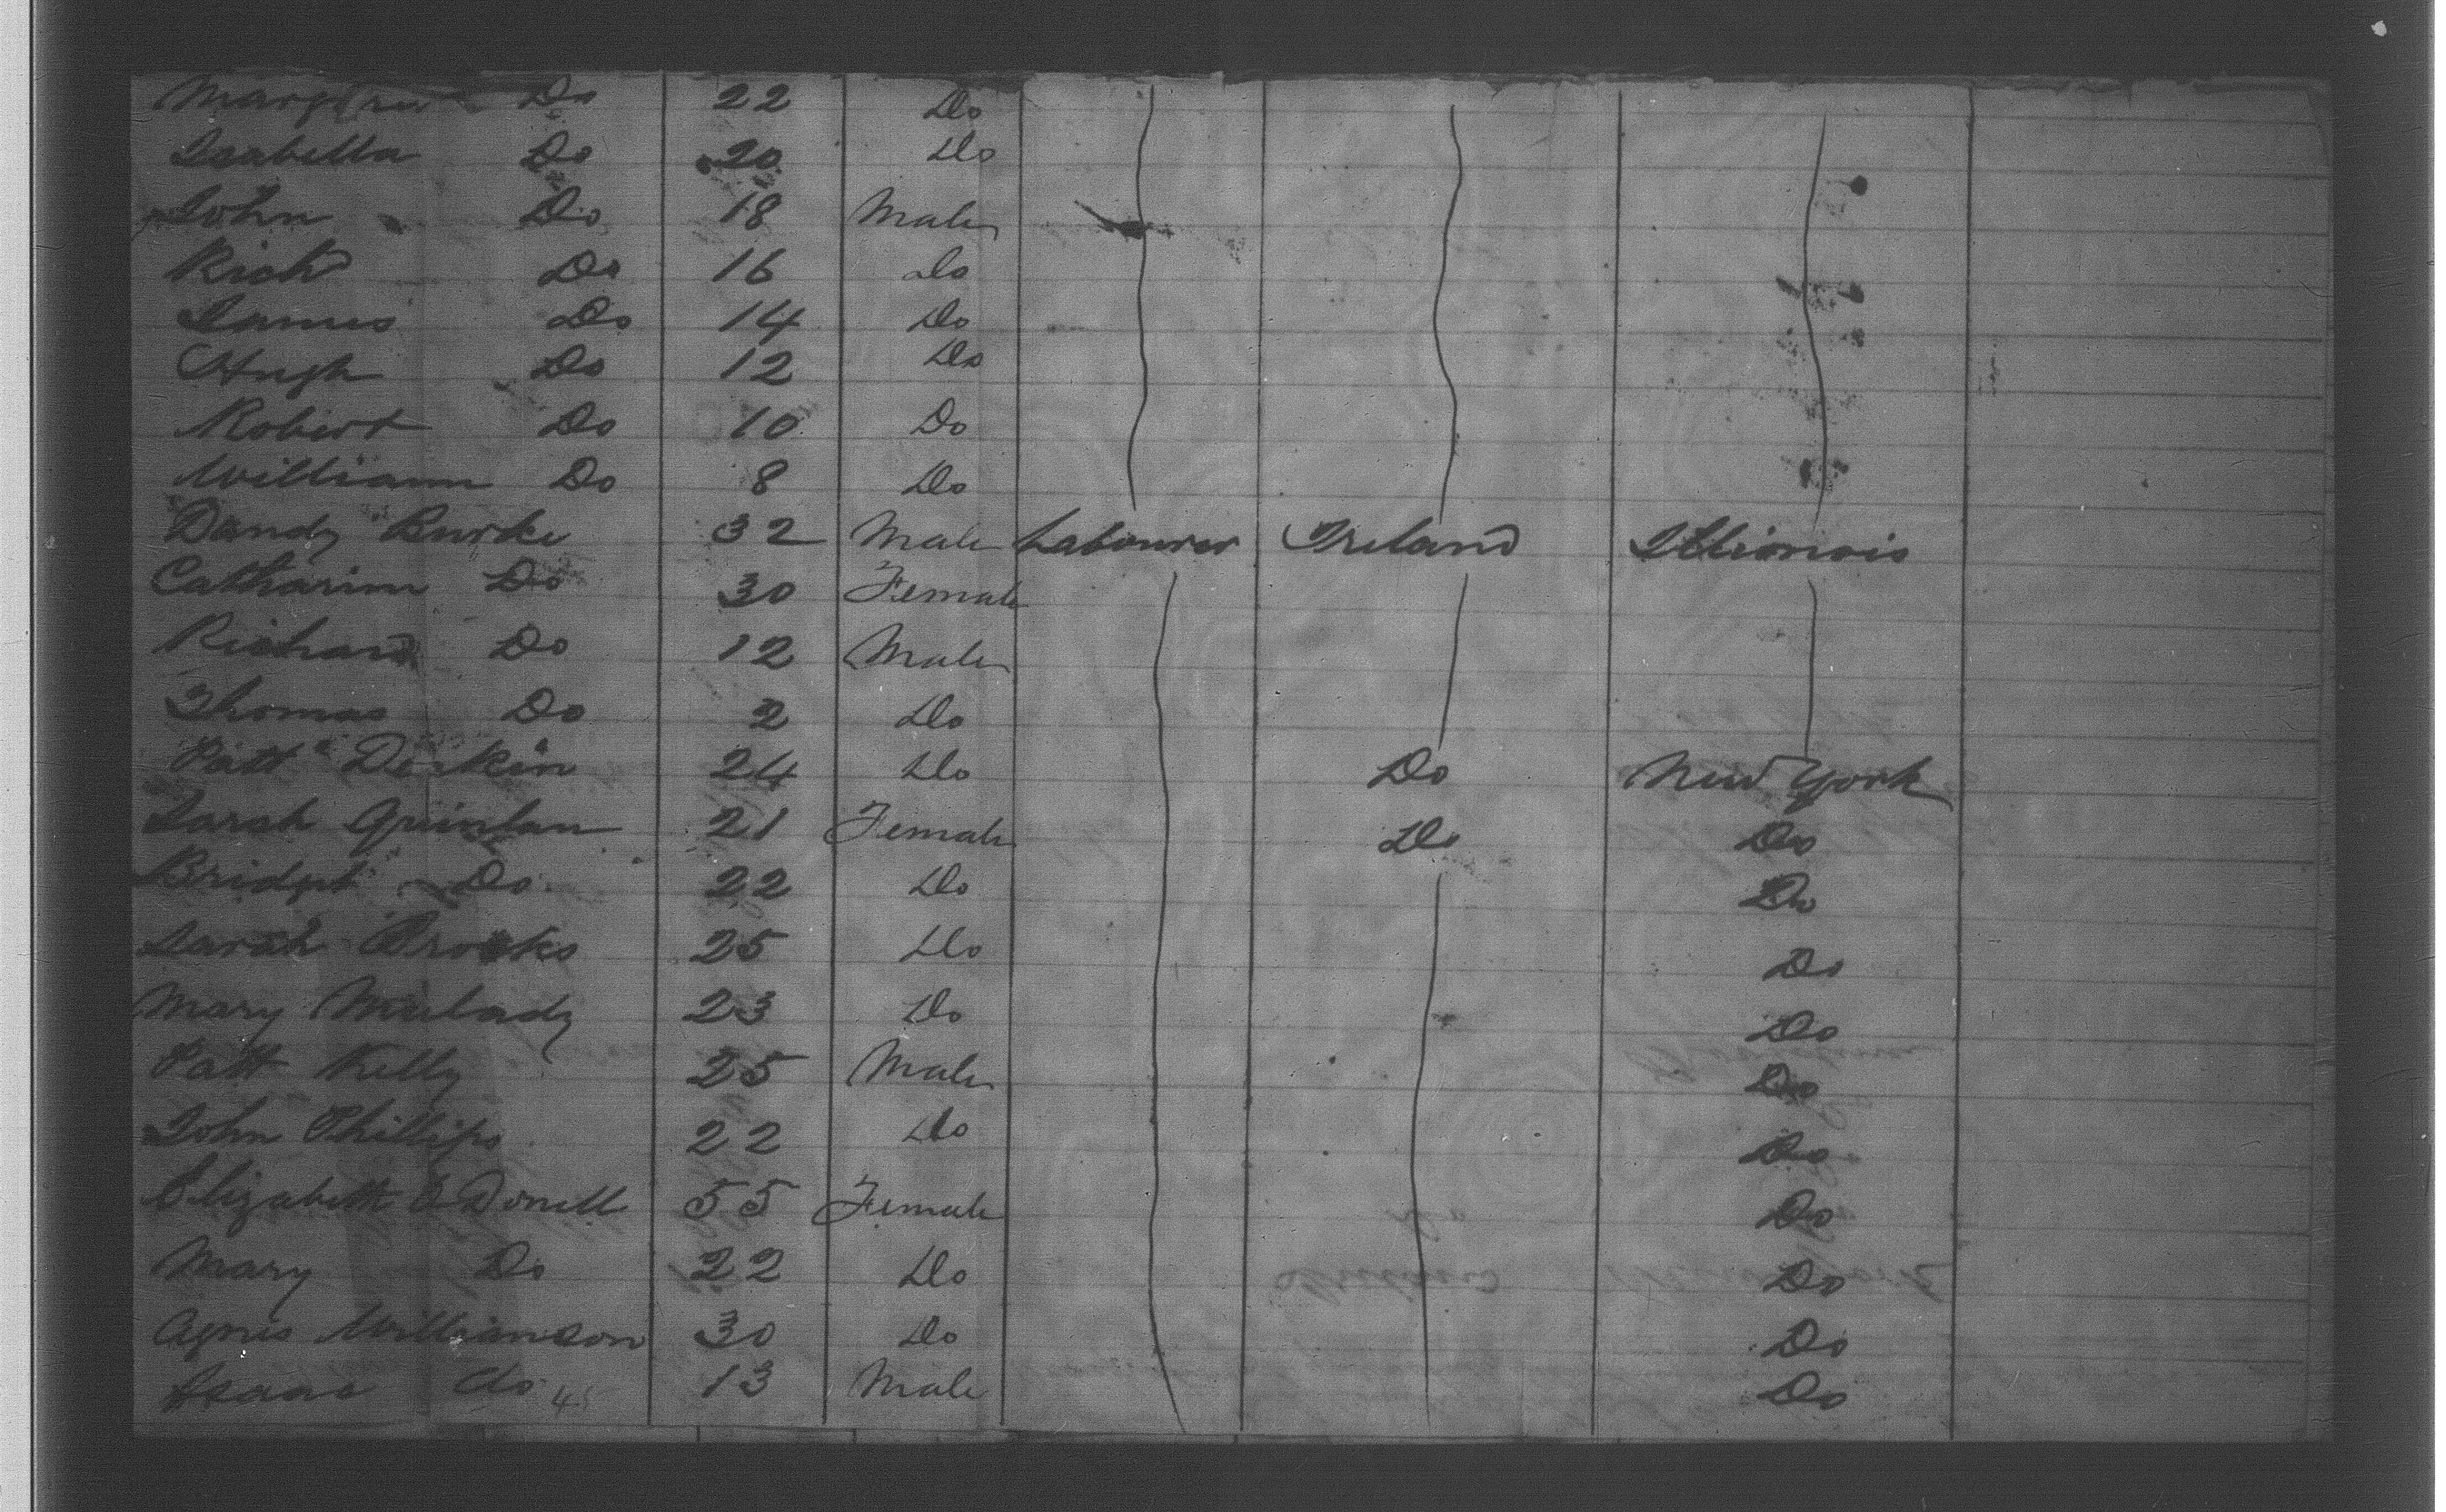 Margaret Do 22 Do
Isabella Do 20 Do
John Do 18 Male
Rich Do 16 do
James Do 14 Do
Hugh Do 12 Do
Robert Do 10 Do
William Do 8 Do
Dandy Burke 32 Male Labourer Ireland Illionois
Catharine Do 30 Female
Richard Do 12 Male
Thomas Do 2 Do
Patt Derkin 24 Do Do New York
Sarah Quinlan 21 Female Do Do
Bridget Do 22 Do Do
Sarah Brooks 25 Do Do
Mary Mulady 23 Do Do
Patt Kelly 25 Male Do
John Phillips 22 Do Do
Elizabeth O Donell 55 Female Do
Mary Do 22 Do Do
Agnes Williamson 30 Do Do
Isaac do 45 13 Male Do